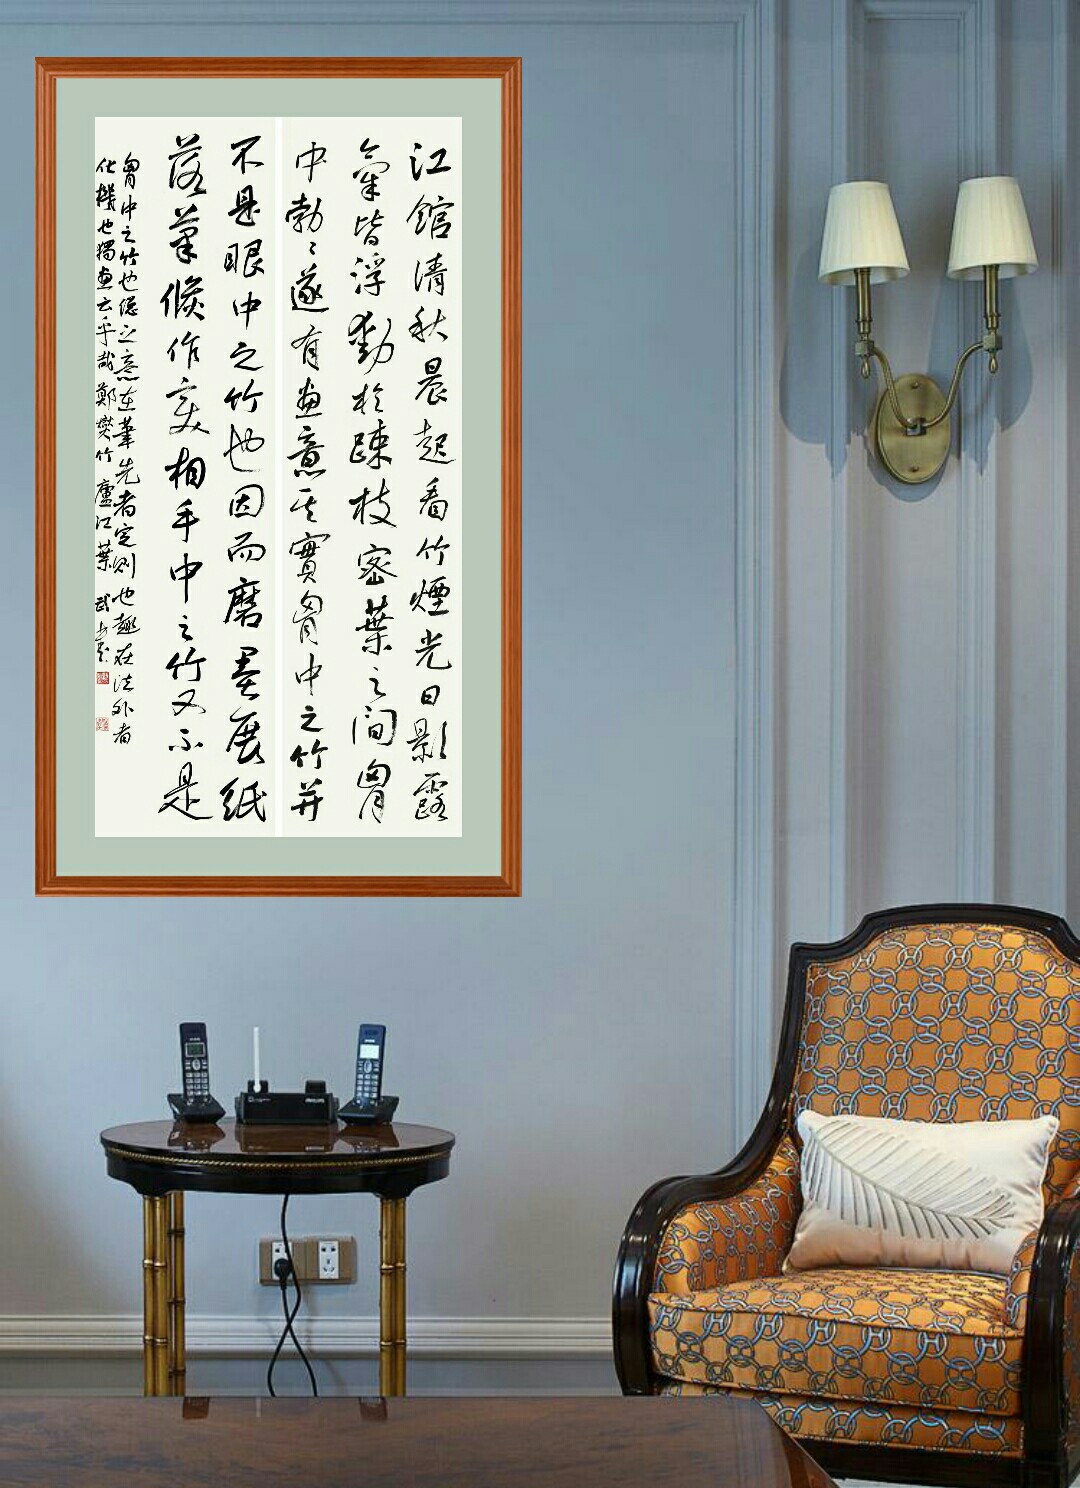 江館清秋晨起看竹煙光日影露
氣皆浮動於疎枝密葉之間胷
中勃〻遂有畫意其實胷中之竹并
不是眼中之竹也因而磨墨展紙
落筆倏作變相手中之竹又不是
胷中之竹也總之意在筆先者定則也趣在法外者
化機也獨畫云乎哉鄭燮竹 廬江葉 武
PHILIPS